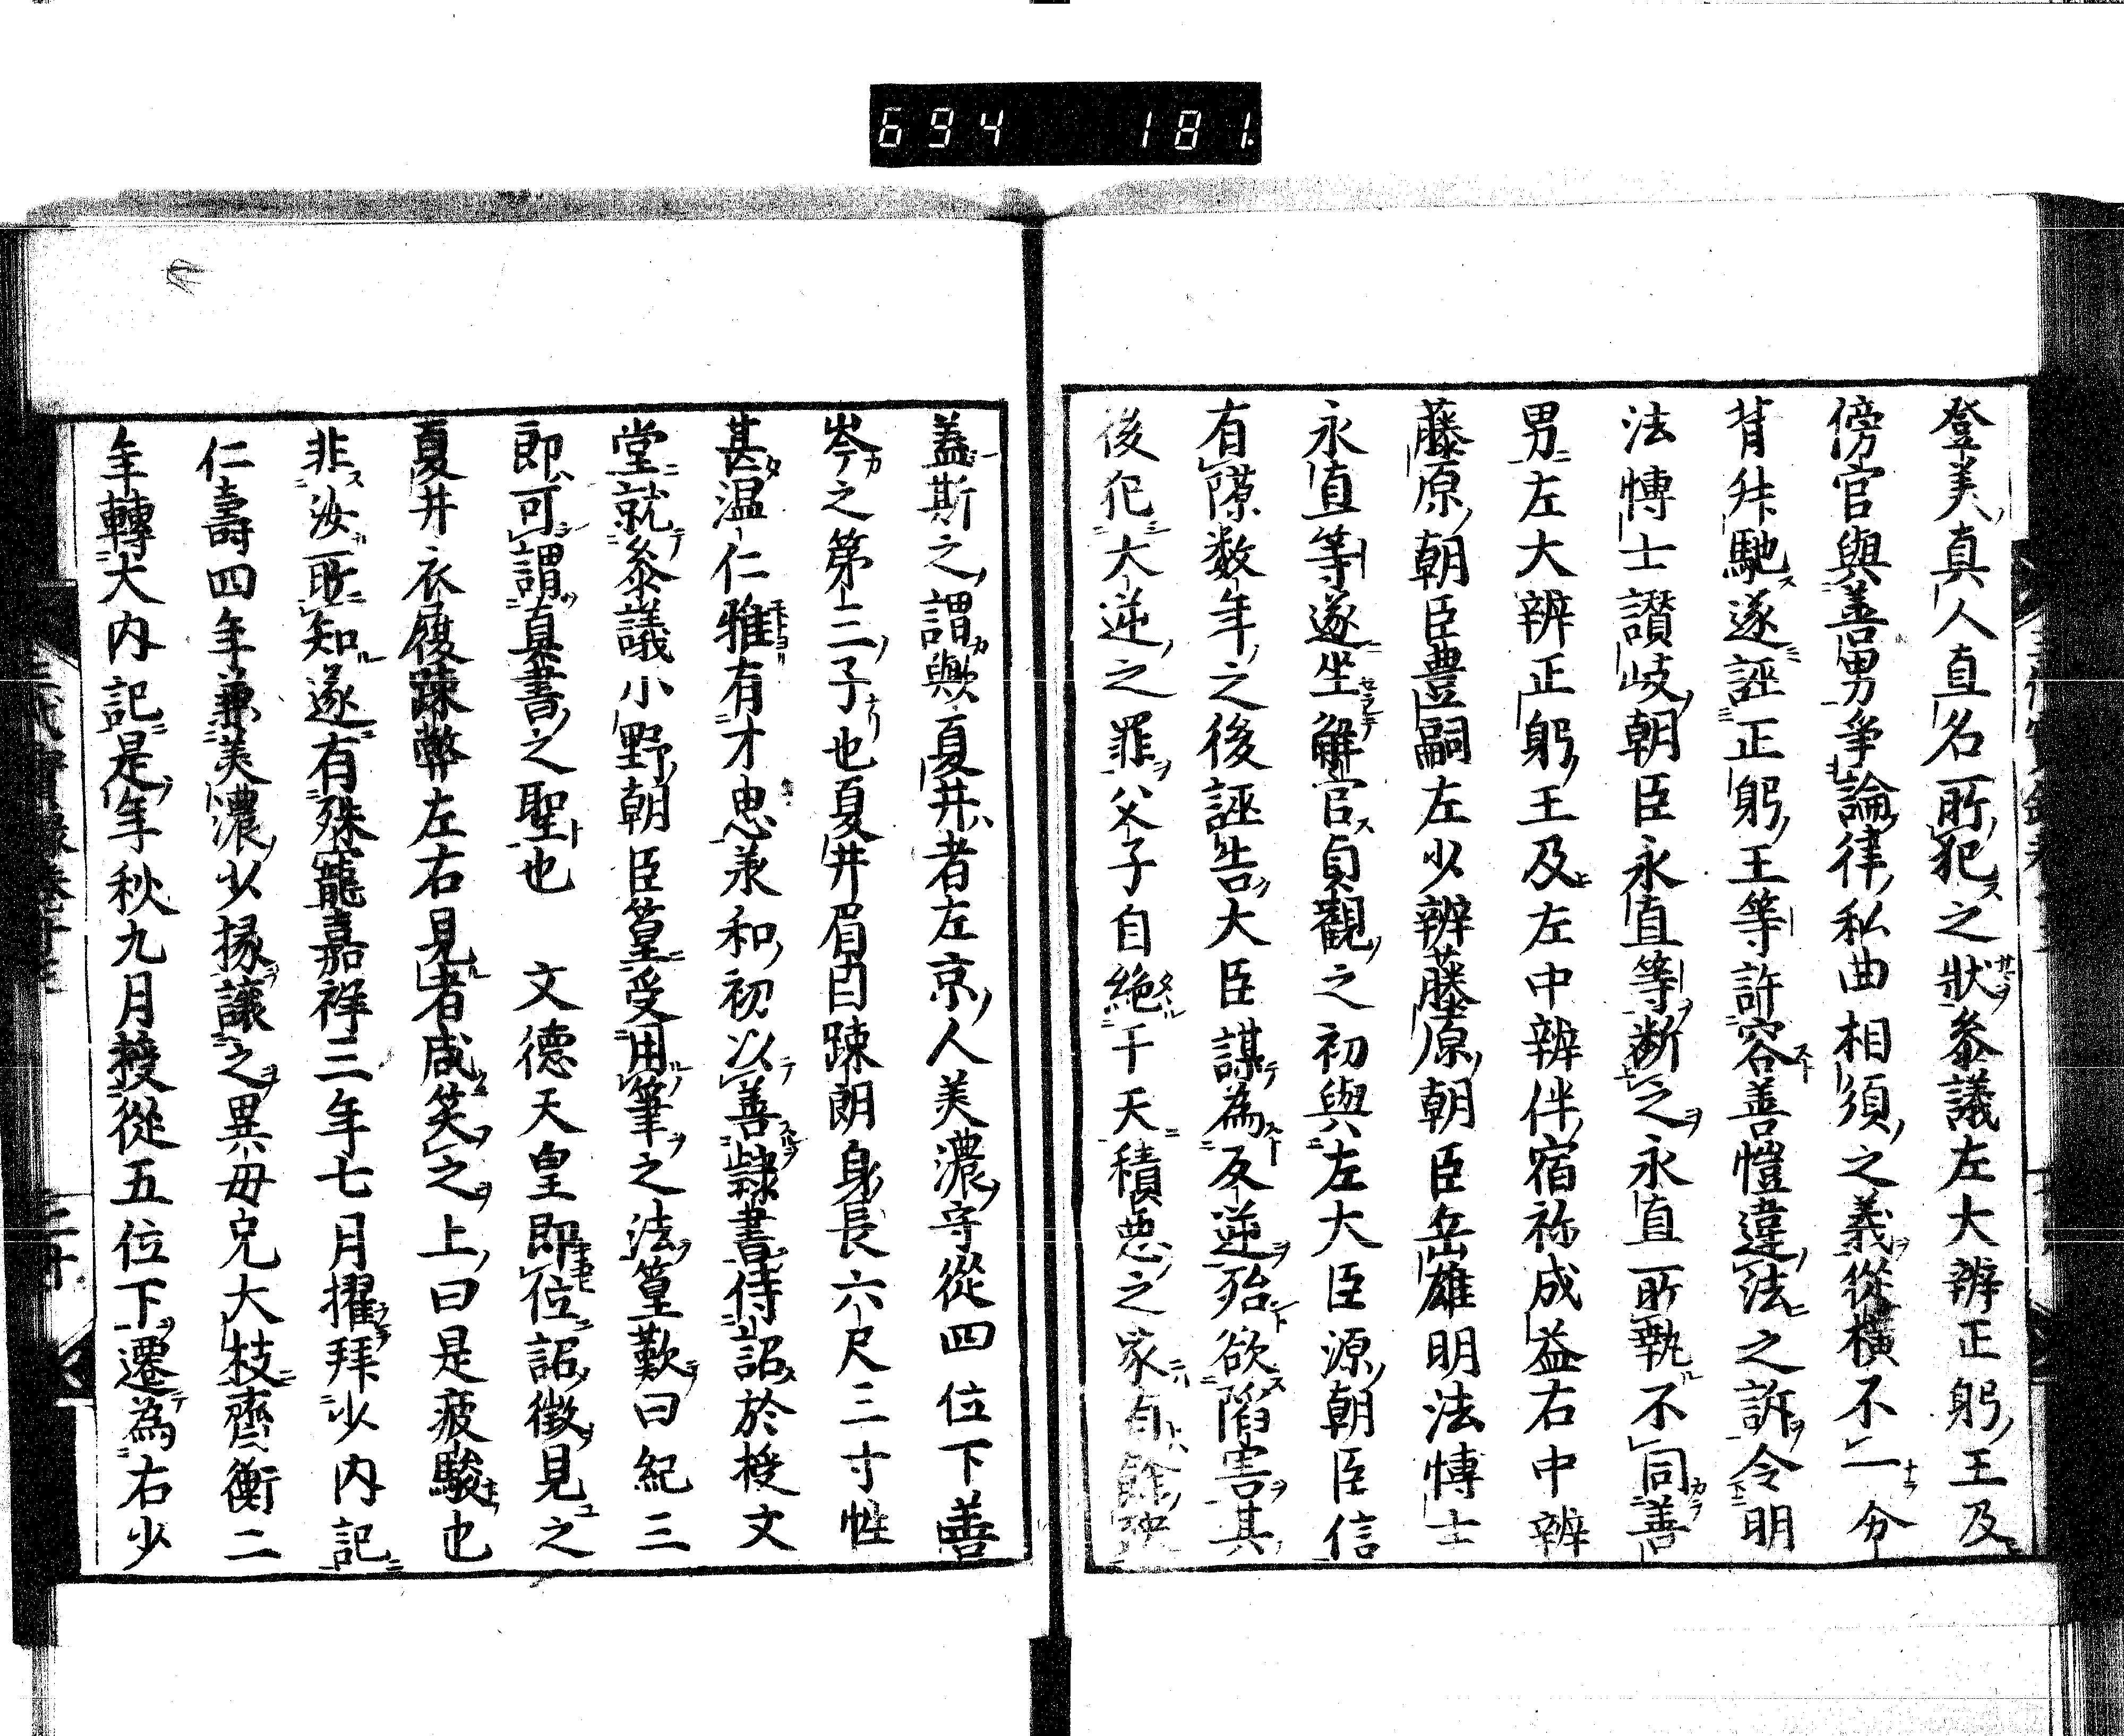 694 181
登美真人直名所犯之狀叅議左大辨正躬王及
傍官與善男爭論律私曲相須之義從横不一分
背舛馳遂誣正躬王等許容善愷違法之訴令明
法愽士讃岐朝臣永直等断之永直所執不同善
男左大辨正躬王及左中辨伴宿祢成益右中辨
藤原朝臣豊嗣左少辨藤原朝臣岳雄明法愽士
永直等遂坐解官貞觀之初與左大臣源朝臣信
有隙数年之後誣告大臣謀為反逆殆欲陷害其
後犯大逆之罪父子自絶于天積悪之家有餘殃
蓋斯之謂歟夏井者左京人美濃守從四位下善
岑之第三子也夏井眉目踈朗身長六尺三寸性
甚温仁雅有才思羕和初以善隸書侍詔於授文
堂就叅議小野朝臣篁受用筆之法篁歎曰紀三
即可謂真書之聖也　文德天皇即位詔徵見之
夏井衣履踈弊左右見者咸笑之上曰是疲駿也
非汝所知遂有殊寵嘉祥三年七月擢拜少内記
仁壽四年兼美濃少掾讓之異母兄大枝齊衡二
年轉大内記是年秋九月授從五位下遷為右少